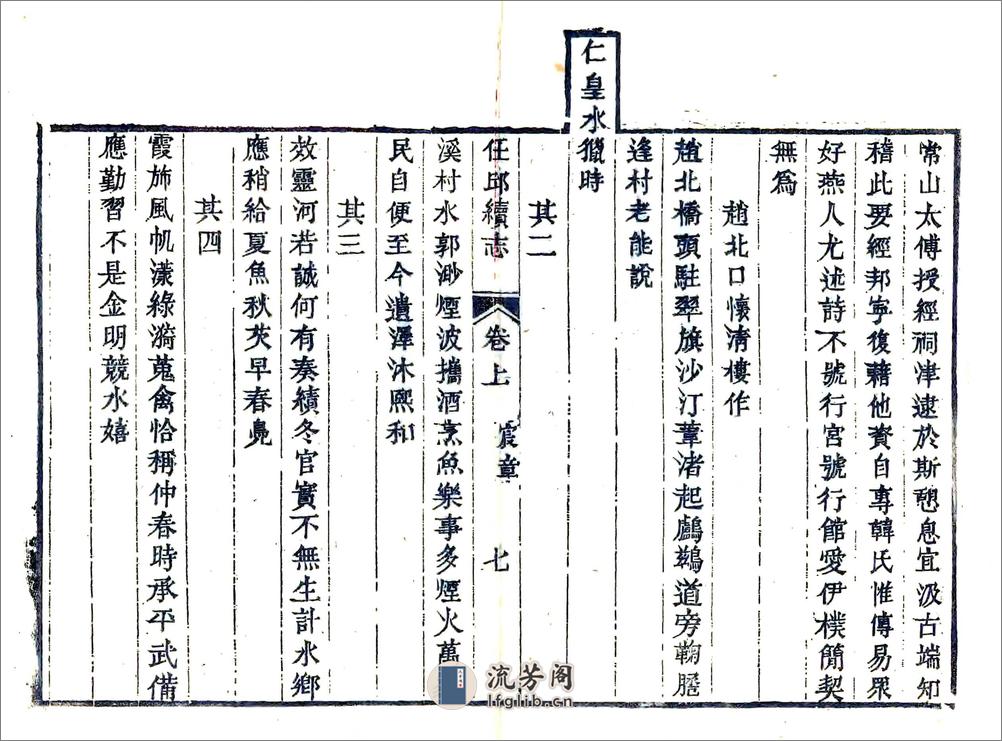 常山太傅授經祠津逮於斯憩息宜汲古端知
稽此要經邦寧復藉他資自專韓氏惟傳易眾
好燕人尤述詩不號行宮號行館愛伊樸簡契
無為
趙北口懷清樓作
趙北橋頭駐翠旗沙汀葦渚起鸕鶿道旁鞠䐺
逢村老能說
仁皇水獵時
其二
任邱續志 卷上 宸章 七
溪村水郭渺煙波攜酒烹魚樂事多煙火萬
民自便至今遺澤沐熙和
其三
效靈河若誠何有奏績冬官實不無生計水鄉
應稍給夏魚秋芡早春鳧
其四
霞斾風帆漾綠漪蒐禽恰稱仲春時承平武備
應勤習不是金明競水嬉
流芳阁
lfglib.cn